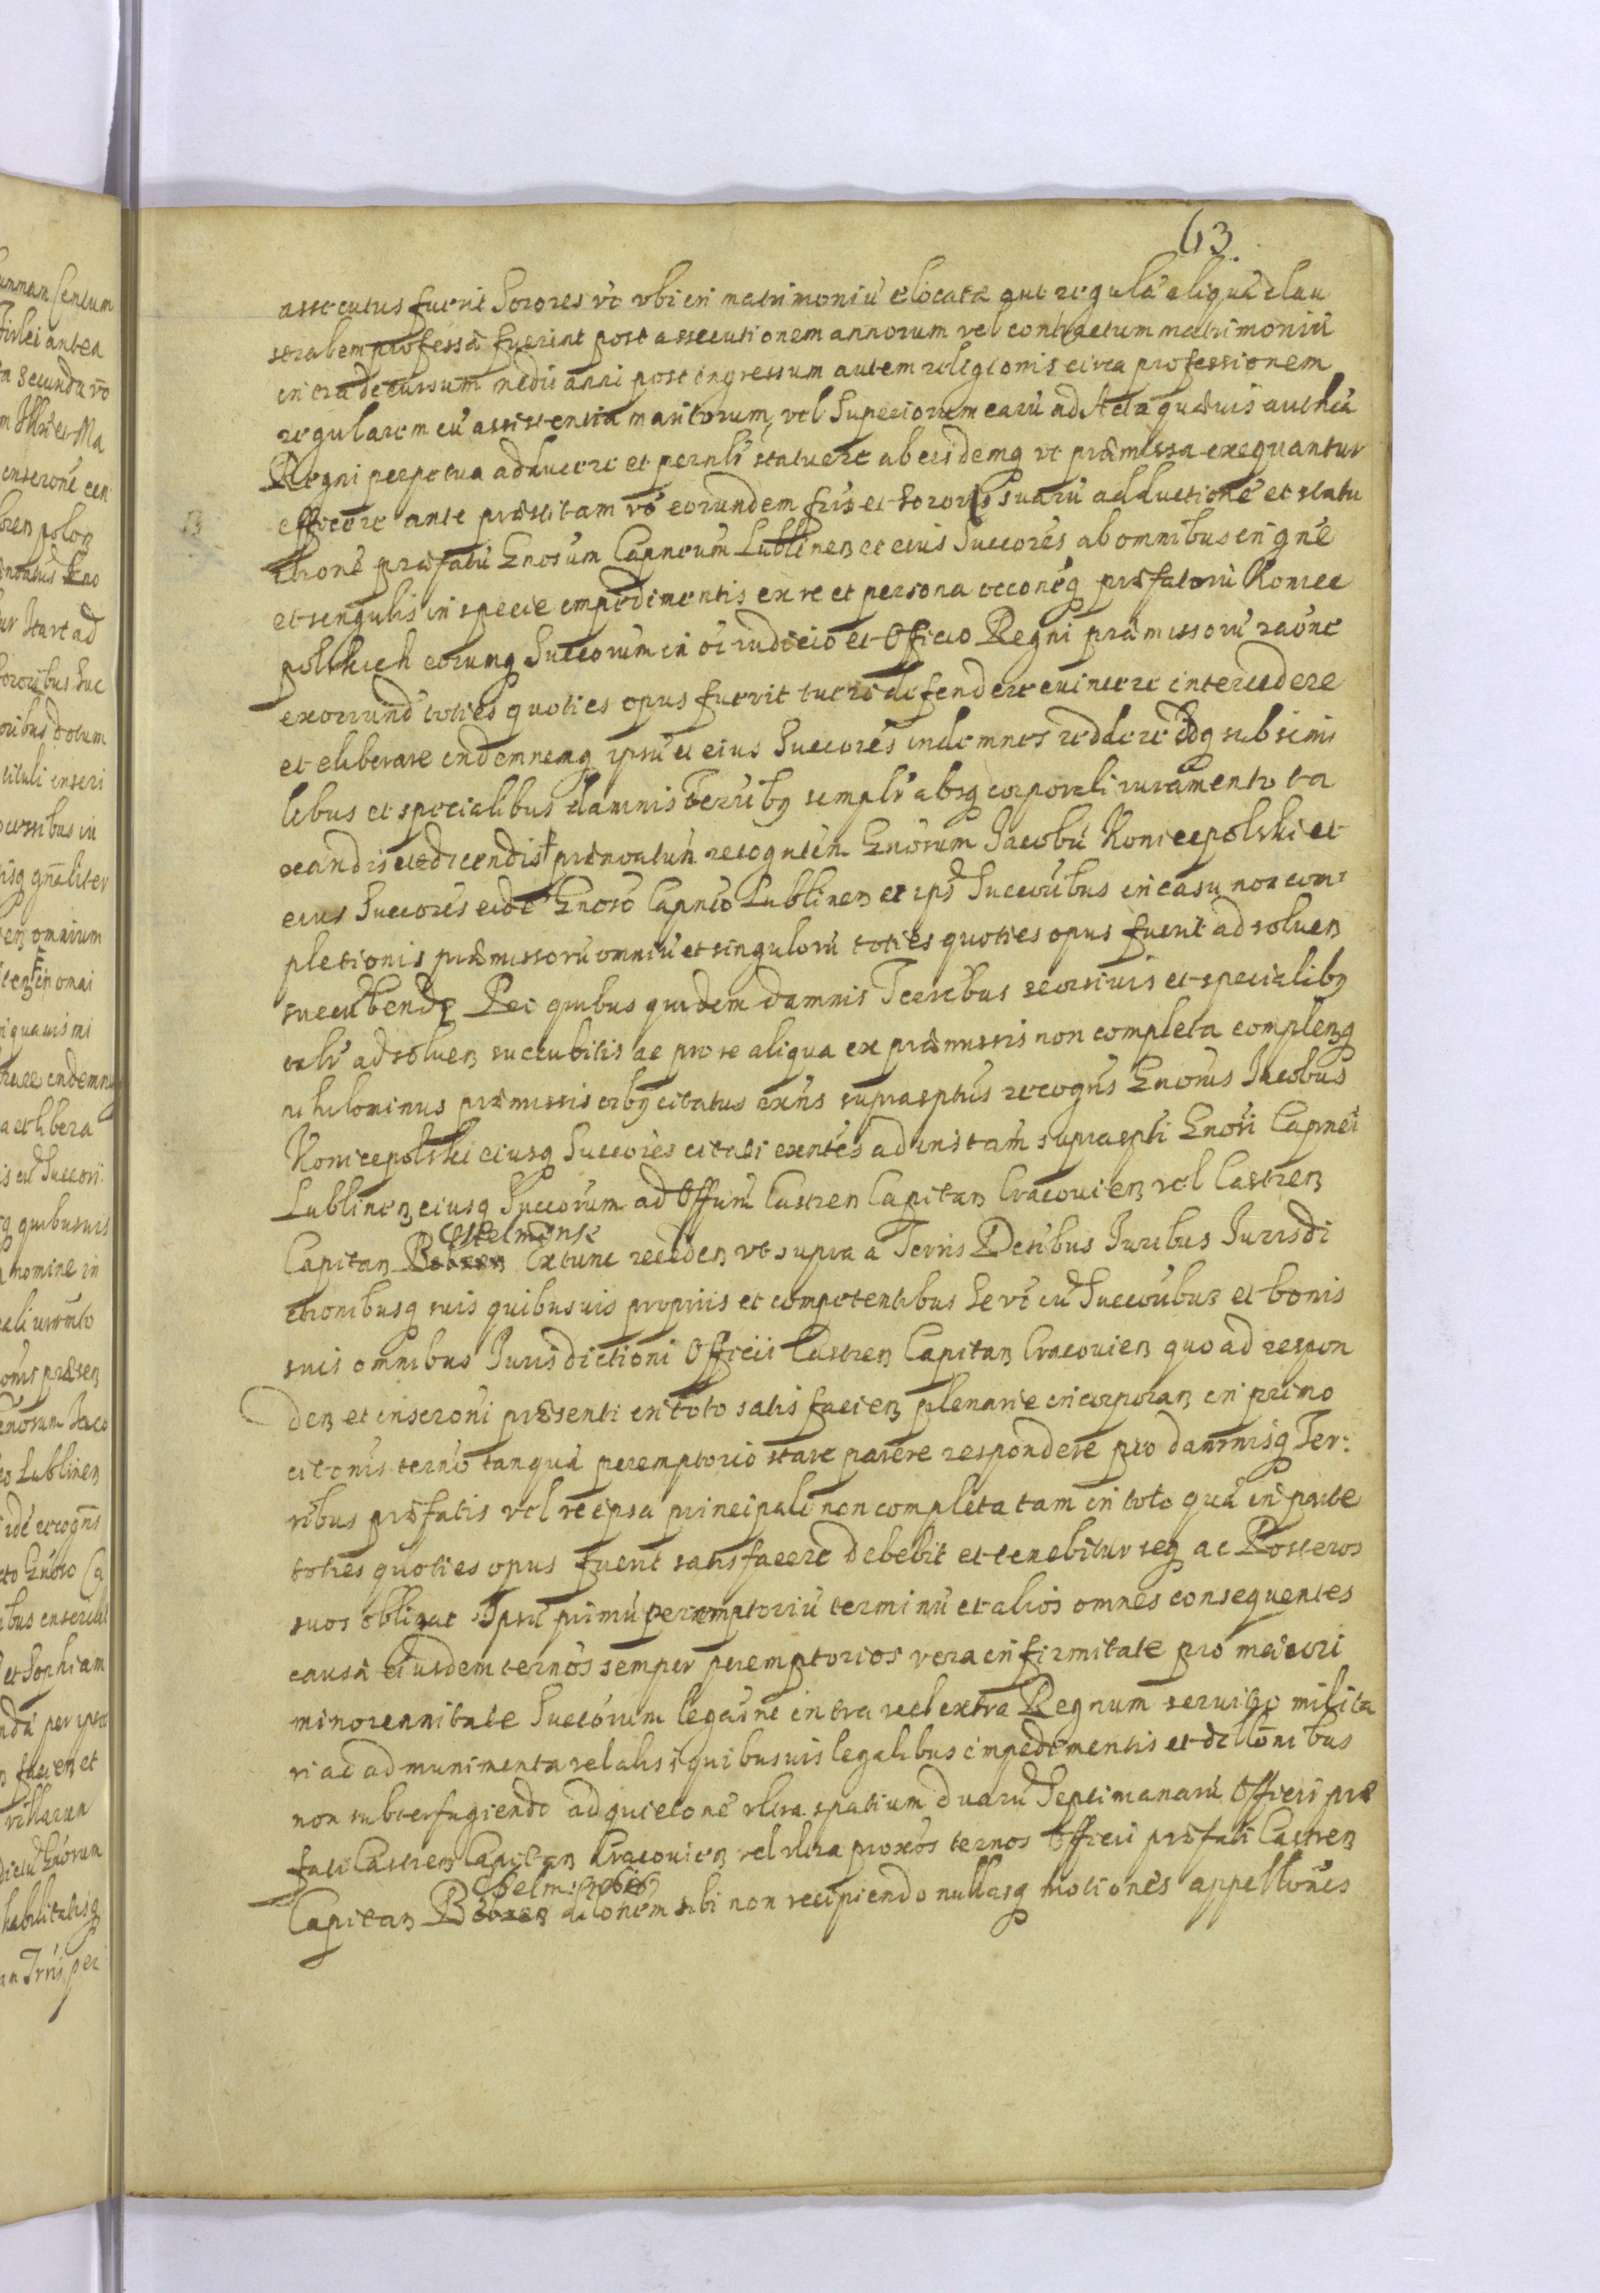 63
assecutus fuerit Sorores vō vbi in matrimoniū elocatæ aut regulā aliquā clau
stralem professæ fuerint post assecutionem annorum vel contractum matrimonii
intra decursum medii anni post ingressum autem religionis circa professionem
regularem cū assistentia maritorum vel Superiorum earū ad Acta quævis authēa
Regni perpetua adducere et pernlr statuere ab eisdemq vt præmissa exequantur
efficere ante præstitam vō eorundem fris et Sororis suarū adductionē et statu
tionē præfatū Gnosum Capneum Lublinen et eius Succores ab omnibus in gne
et singulis in specie impedimentis ex re et persona occōneq præfatorū Koniec
polskich eorumq Succorum in oi iudicio et Officio Regni præmissorū raōne
exoriund toties quoties opus fuerit tueri defendere euincere intercedere
et eliberare indemnemq ipsū et eius Succores indemnes reddere Idq sub simi
libus et specialibus damnis Terribq simplr absq corporali iuramento ta
xandis et edicendis prænōtum recognten Gnōsum Jacobū Koniecpolski et
eius Succores eidē Gnoso Capneo Lublinen et ips Succoribus in casu non com
pletionis præmissorū omniū et singulorū toties quoties opus fuerit ad soluen
succūbend Pro quibus quidem damnis Terribus secrsiuis et specialibq
talr ad soluen succubitis ac pro re aliqua ex præmissis non completa complenq
nihilominus præmissis oibq citatus exns suprasptus recogns Gnosus Jacobus
Koniecpolski eiusq Succores citati exntes ad instam suprasti Gnosi Capnei
Lublinen eiusq Succorum ad Offum Castren Capitan Cracouien vel Castren
Chelmense
Capitan Extunc receden vt supra a Terris Distibus Iuribus Jurisdi
ctionibusq suis quibusuis propriis et competentibus Se vō cū Succoribus et bonis
suis omnibus Jurisdictioni Officii Castren Capitan Cracouien quo ad respon
den et inscrōni præsenti in toto satis facien plenarie incorporan in primo
citōnis ternō tanquā peremptorio stare parere respondere pro damnisq Ter
ribus præfatis vel re ipsa principali non completa tam in toto quā in parte
toties quoties opus fuerit satisfacere debebit et tenebitur seq ac Posteros
suos obligat Ipsū primū peremptoriū terminū et alios omnes consequentes
causā eiusdem ternōs semper peremptorios vera infirmitate pro maiori
minorennitate Succorum legaōne intra vel extra Regnum seruitio milita
ri ac ad munimenta vel aliis quibusuis legalibus impedimentis et dillōnibus
non subterfugiendo ad quietōnē vltra spatium duarū Septimanarū Officii præ
fati Castren Capitan Cracouien vel vltra proxōs ternos Officii præfati Castren
Chelmensis
Capitan dilōnem sibi non recipiendo nullasq motiones appellōnes